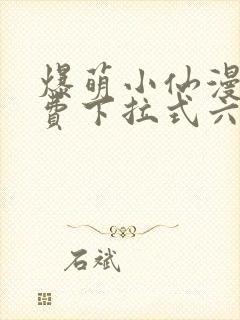 爆萌小仙漫
费下拉式六
石斌